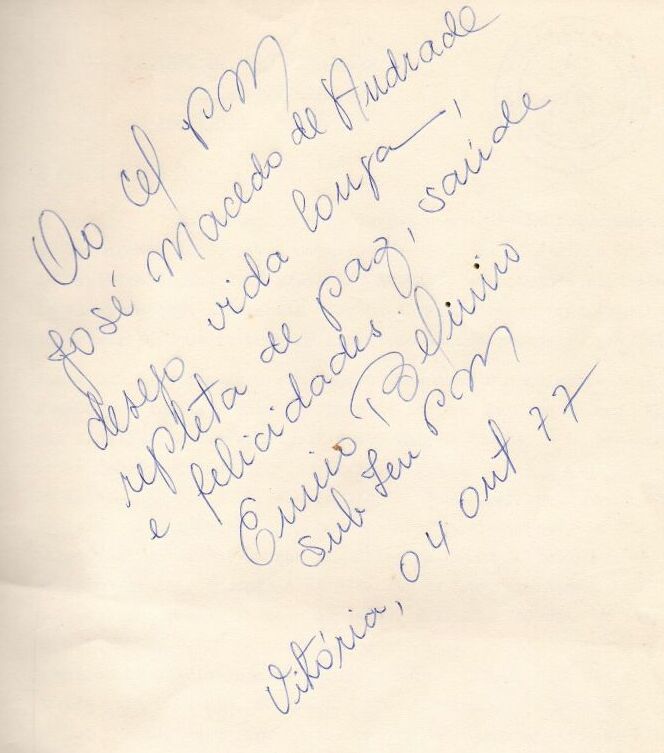 Ao Cel PM
José Macedo de Andrade
desejo vida longa,
repleta de paz, saúde
e felicidades.
Belmiro
Sub Ten PM
Vitória, 04 Out 77